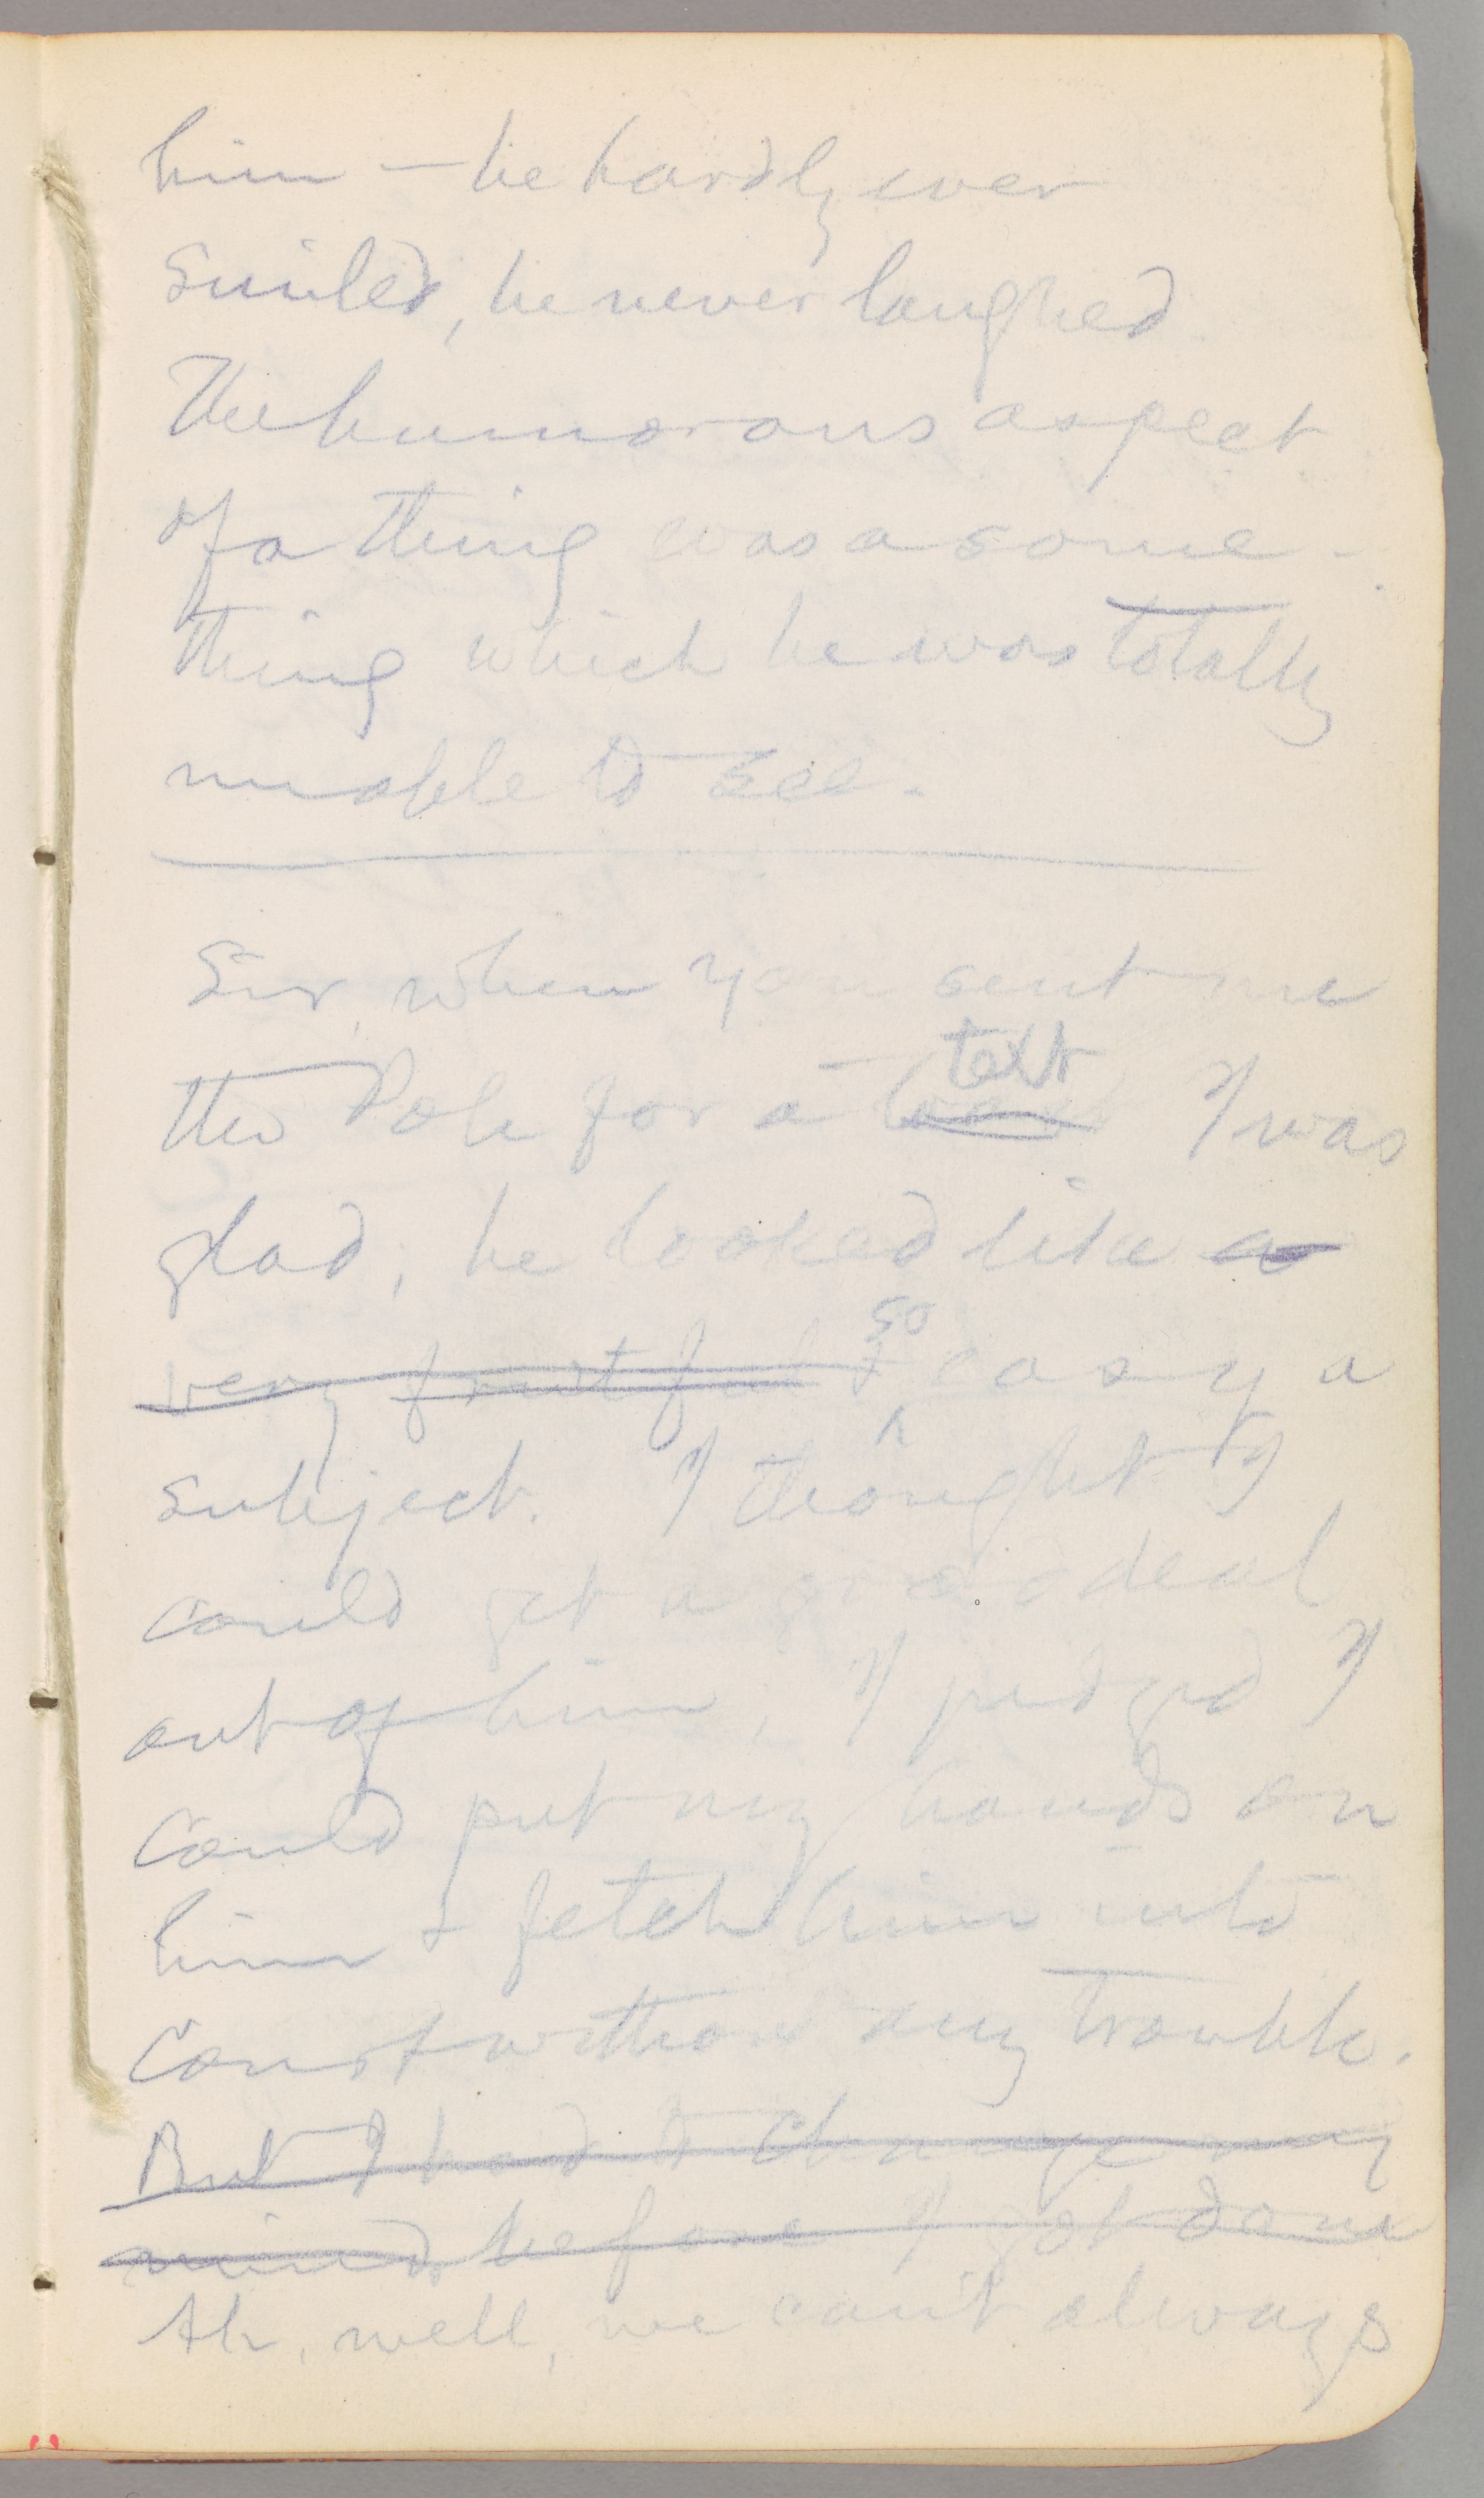 him — he hardly ever
smiled, he never laughed
The humorous aspect
of a thing was a some-
thing which he was totally
unable to see.
Sir, when you sent me
the Pole for a text I was
glad, he looked like a
very fruitful & so easy a
subject. I thought I
could get a good deal
out of him; I judged I
could put my hands on
him & fetch him into
Court without any trouble.
But I had to change my
mind before I got done
Ah, well, we can't always